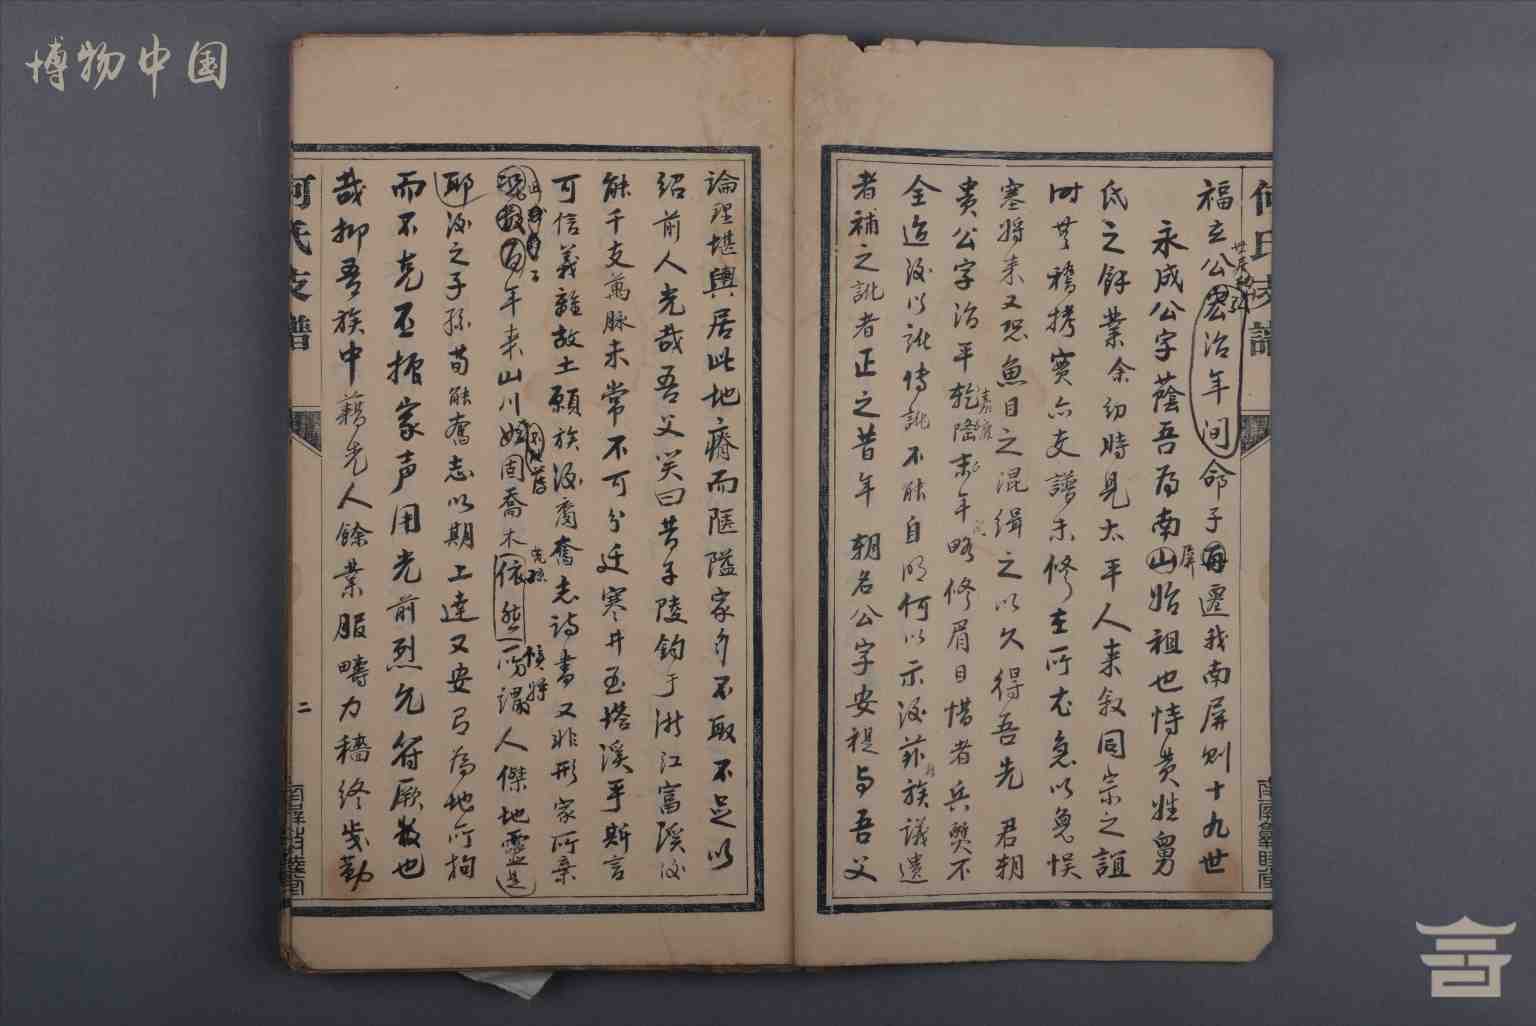 博物中国
何氏支譜
福立公宏治年間命子再遷我南屏則十九世
永成公字蔭吾為南山始祖也恃黄姓舅
氏之餘業余幼時見太平人来叙同宗之誼
時世稽考實亦支譜未修主所尤急以免悮
塞將来又恐魚目之混緝之以久得吾先君朝
貴公字治平乾隆末年略修眉目惜者兵燹不
全迨後以訛傳訛不能自明何以示後菲族議遺
者補之訛者正之昔年朝名公字安禔与吾父
論理堪輿居此地瘠而陋隘家多不取不足以
紹前人光哉吾父笑曰昔子陵釣于浙江富溪後
能千支萬脉未常不可分迁寒井玉塔溪乎斯言
可信義難故土願族後裔奮志詩書又非形家所棄
年来山川如固喬木依然所謂人傑地靈是
耶後之子孫苟能奮志以期上達又安可為地所拘
而不克丕振家声用光前烈允符厥教也
哉抑吾族中藉先人餘業服疇力穡終歲勤
何氏支譜
二